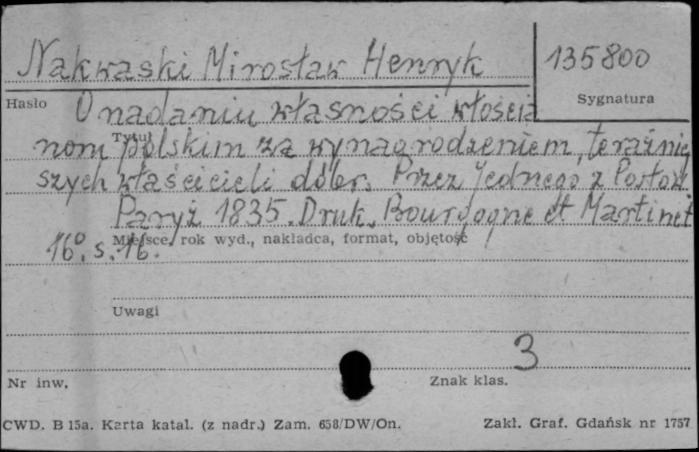 Nakwaski Mirosław Henryk
135800
Hasło
Sygnatura
O nadaniu własności włościa
Tytuł
nom polskim za wynagrodzeniem, teraźniej
szych właścicieli dóbr. Przez Jednego z Posłów.
Paryż 1835. Druk. Bourgogne et Martinet
Miejsce, rok wyd., nakładca, format, objętość
16°. s. 16.
Uwagi
3
Nr inw.
Znak klas.
CWD. B 15a. Karta katal. (z nadr.) Zam. 658/DW/On.
Zakł. Graf. Gdańsk nr 1757